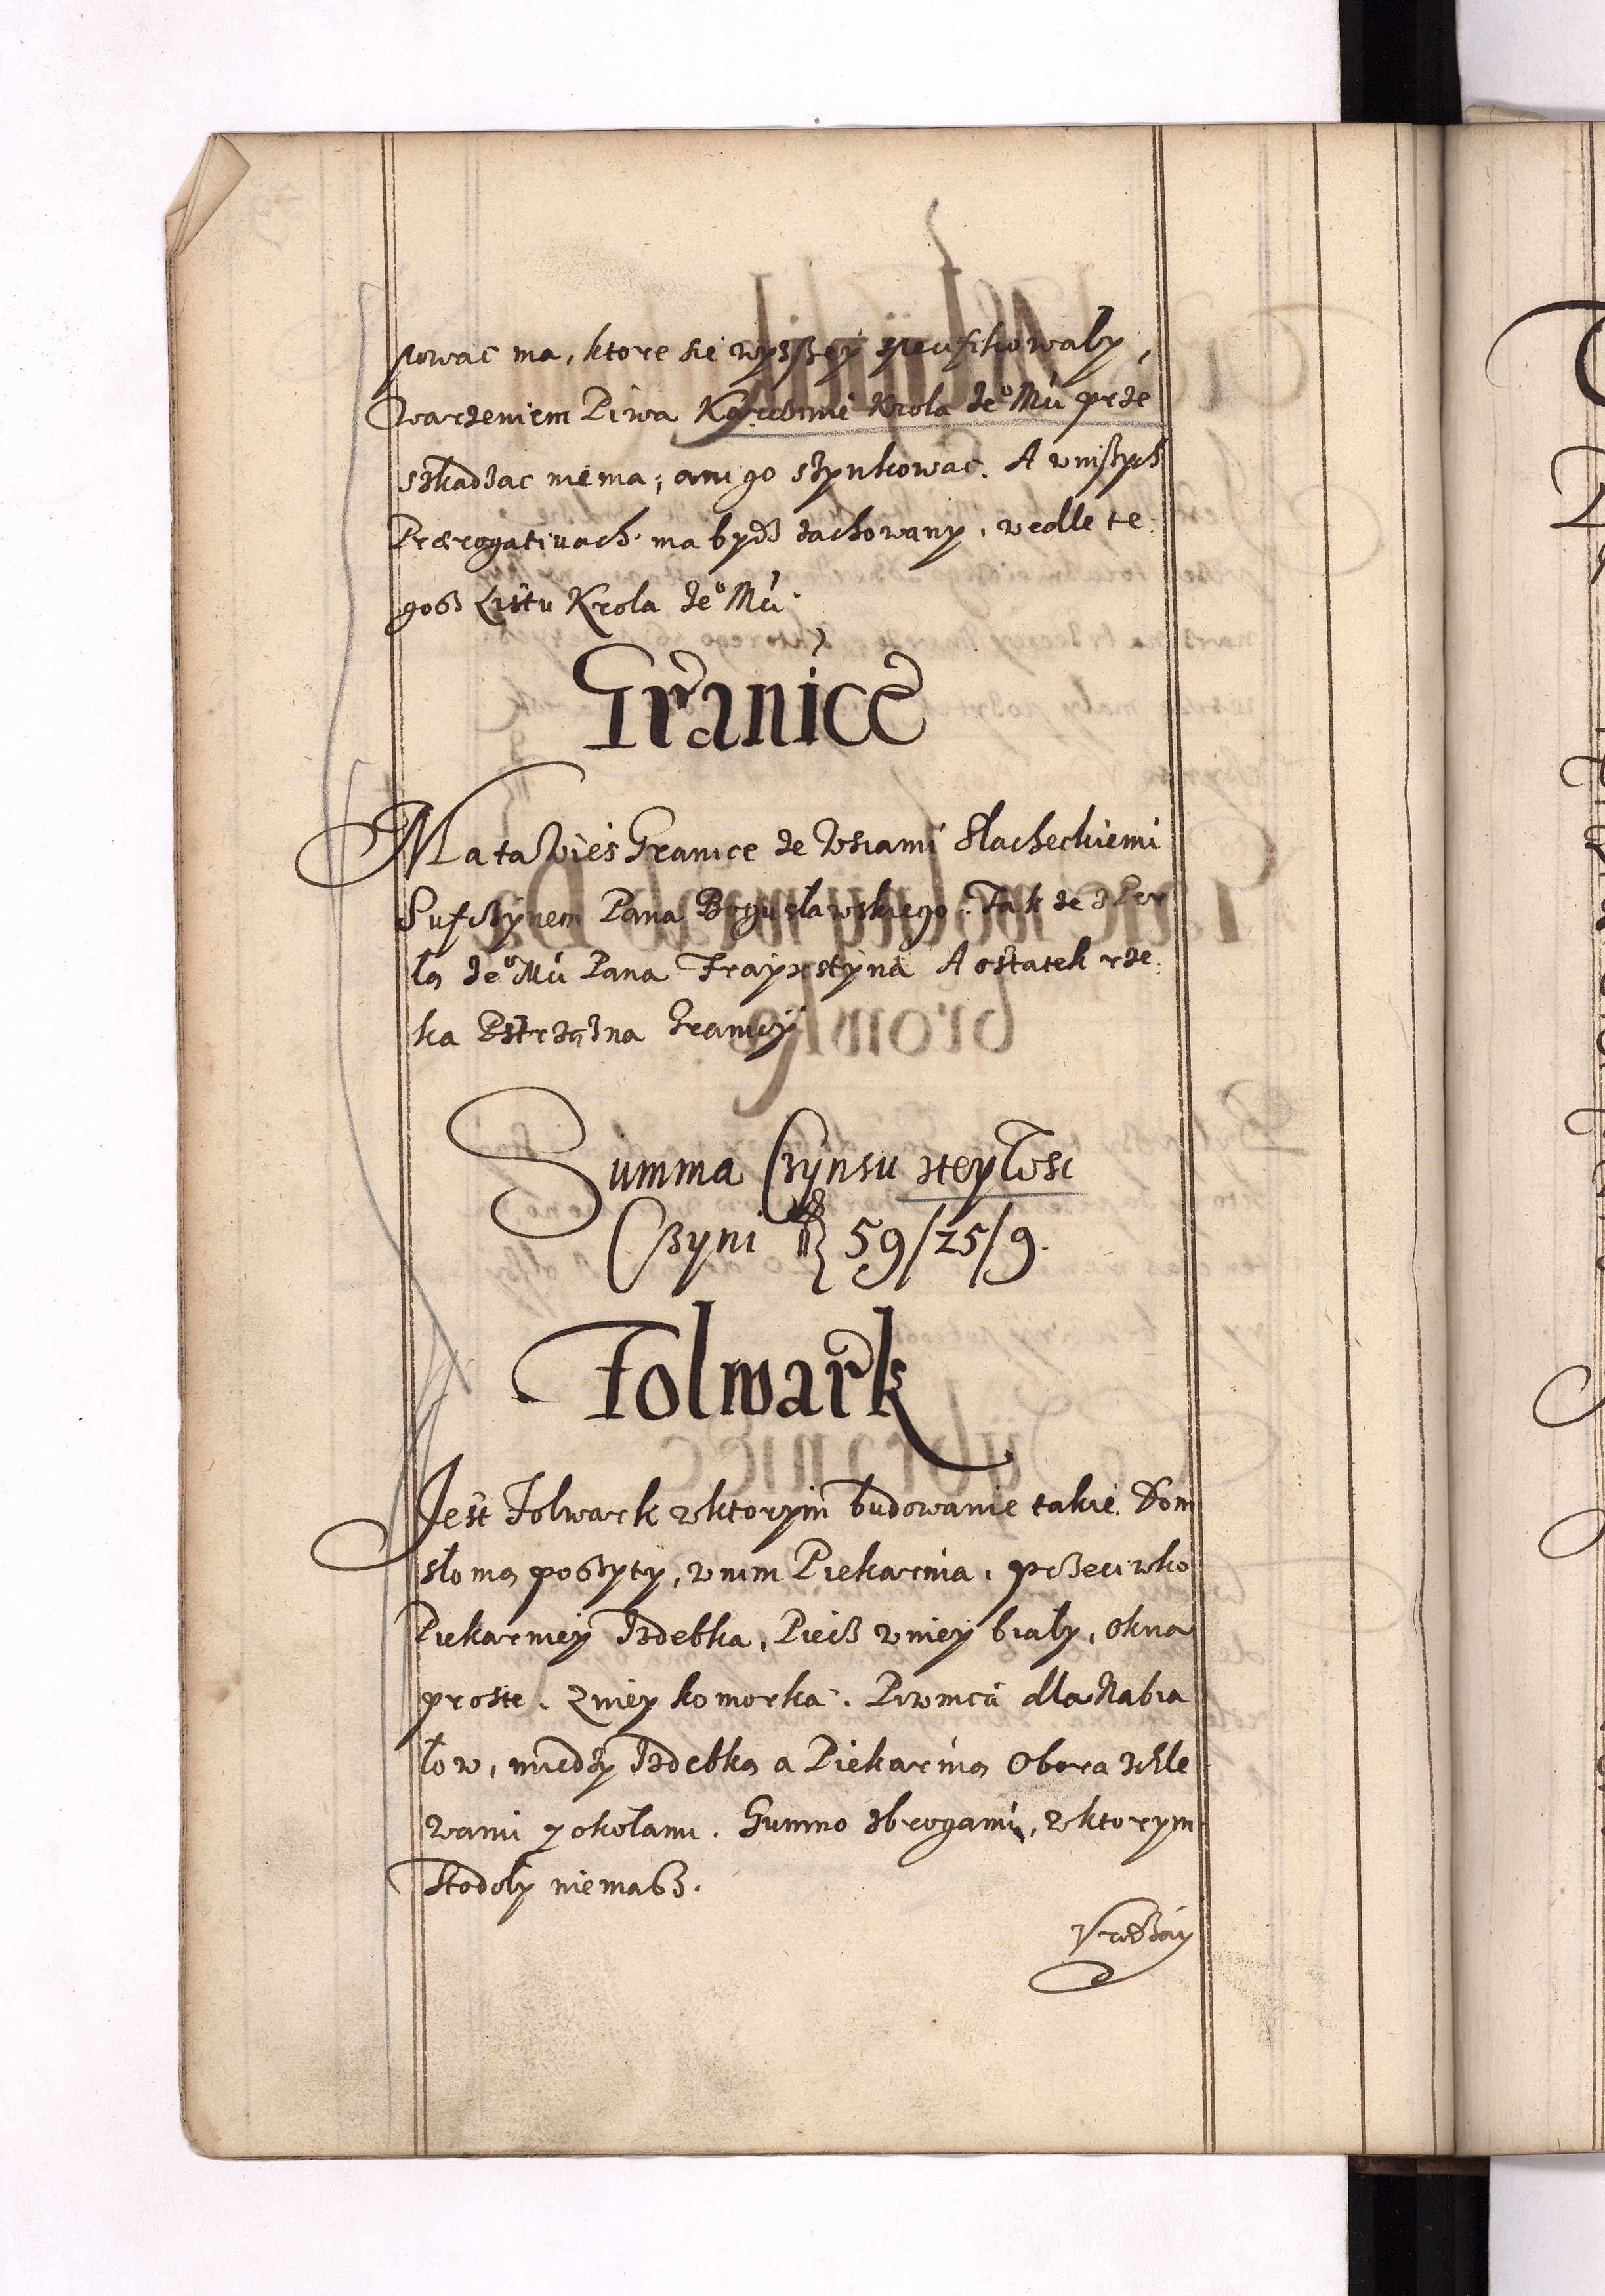 sować ma, ktore się wysszey specifikowały,
Warzeniem Piwa Karczmie Krola Je° Mći prze
szkadzac niema; ani go szynkowac. A w inszych
Prærogativach ma bydz zachowany, wedlle te:
gosz Listu Krola Je° Mći.
Granice
Ma ta Wies Granice ze Wsiami Slacheckiemi
Sufczynem Pana Bogusławskiego. Takze z Per
łą Je° Mći Pana Frayxstyna A ostatek rze:
ka Pstrzązna Graniczy
Summa Czynsu stey Wsi
Czyni fl 59/25/9.
Folwark
Jest Folwark w ktorym budowanie takie. Dom
słomą poszyty, w nim Piekarnia, przeciwko
Piekarniey Izdebka, Piecz w niey biały, Okna
proste. Z niey komorka. Piwnica dla Nabia
łow, miedzy Izdebką a Piekarnią Obora z Chle
wami y okołami. Gumno z brogami, w ktorym
Stodoły niemasz.
Vrodzay